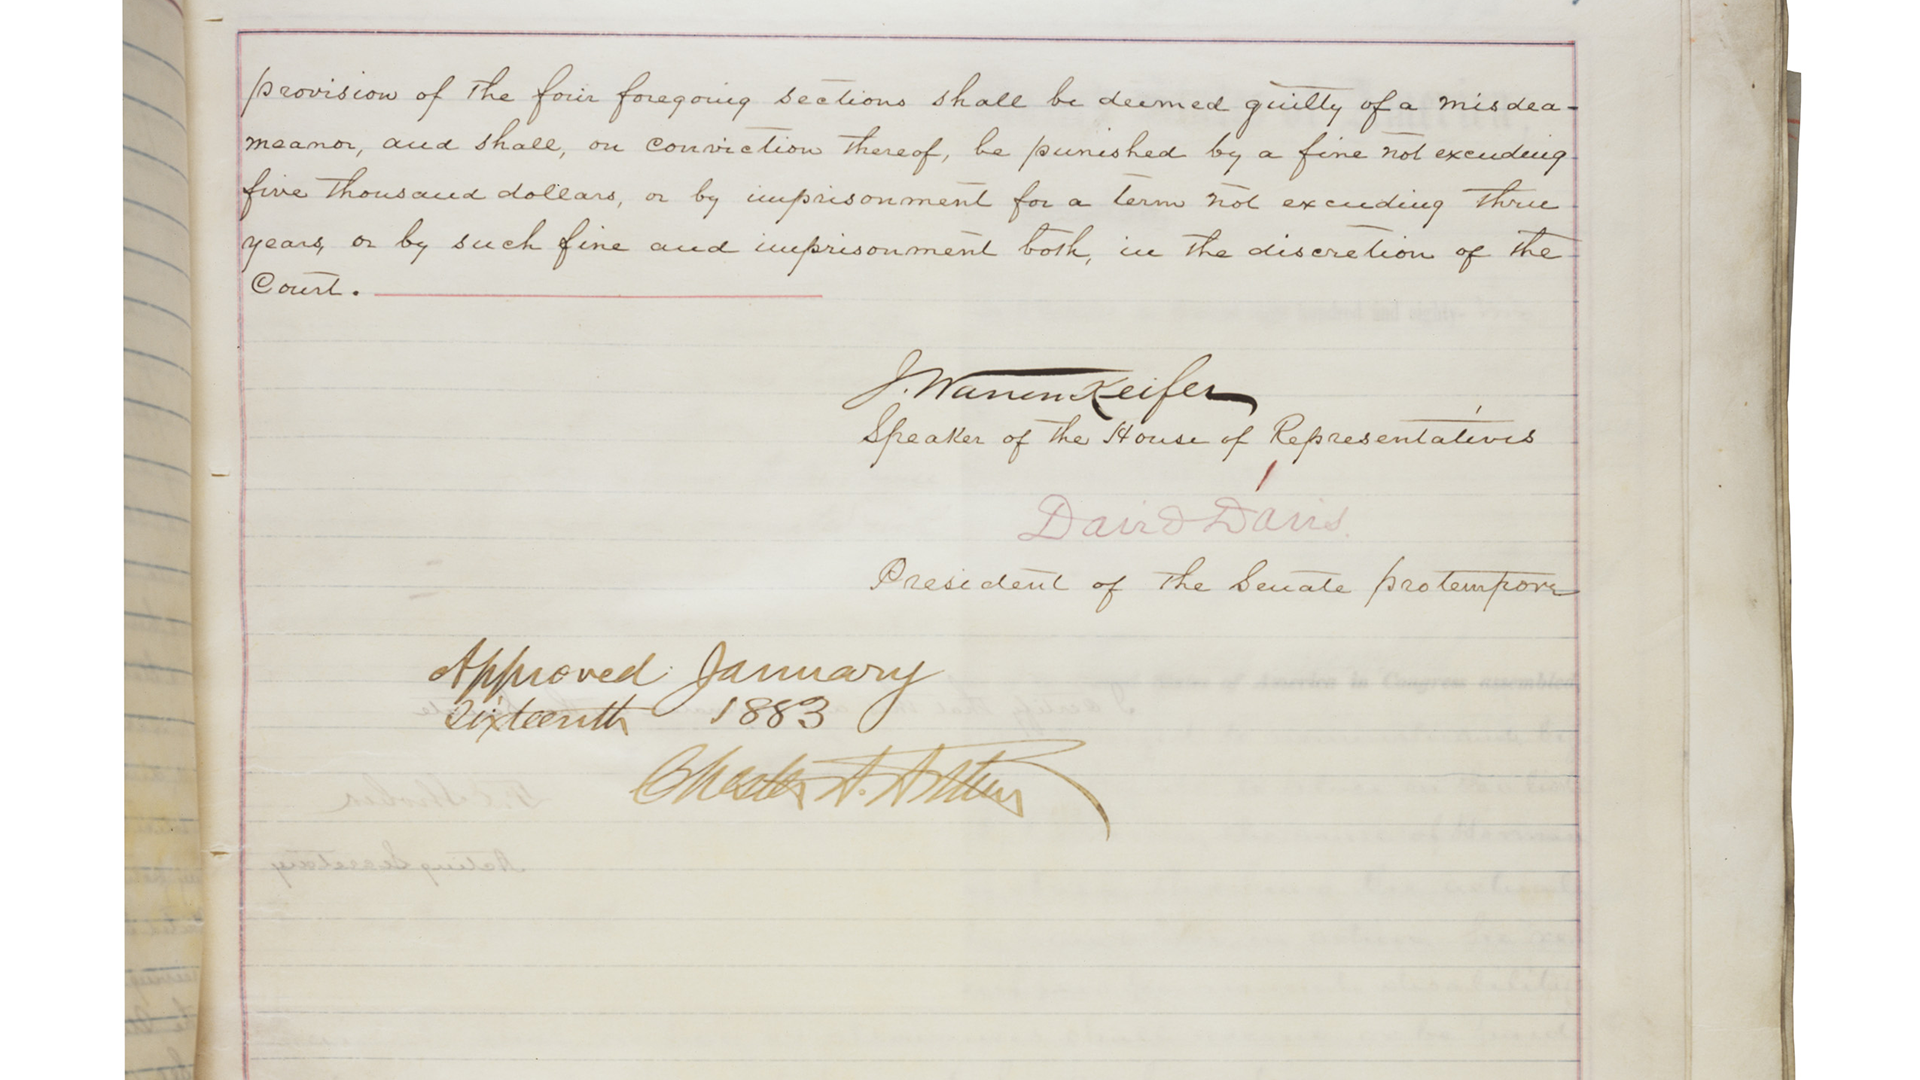 provision of the four foregoing sections shall be deemed guilty of a misdea-
meanor, and shall, on conviction thereof, be punished by a fine not exceeding
five thousand dollars, or by imprisonment for a term not exceeding three
years, or by such fine and imprisonment both, in the discretion of the
Court.
J. Warren Keifer
Speaker of the House of Representatives
David Davis.
President of the Senate pro tempore
Approved January
Sixteenth 1883
Chester A. Arthur